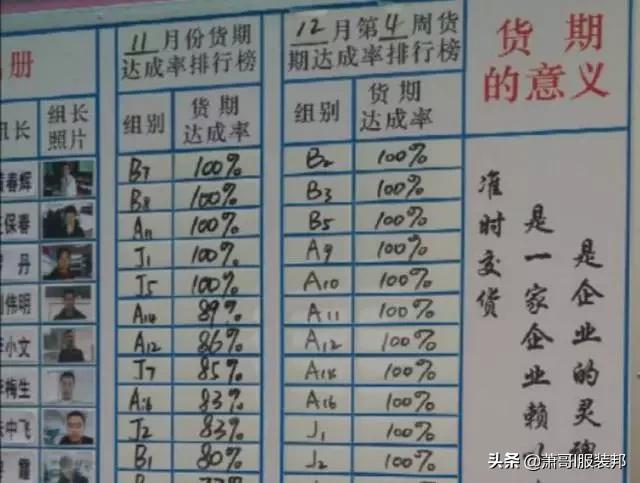 册
组长
组长
照片
春辉
保春
丹
伟明
小文
梅生
中飞
霞
11月份货期
达成率排行榜
组别 货期
达成率
B7 100%
B8 100%
A11 100%
J1 100%
J5 100%
A14 89%
A12 86%
J7 85%
A16 83%
J2 83%
B1 80%
12月第4周货
期达成率排行榜
组别 货期
达成率
B2 100%
B3 100%
B5 100%
A9 100%
A10 100%
A11 100%
A12 100%
A14 100%
A16 100%
J1 100%
J2 100%
货期
的意义
准时交货
是一家企业赖
是企业的灵魂
头条 @萧哥I服装邦